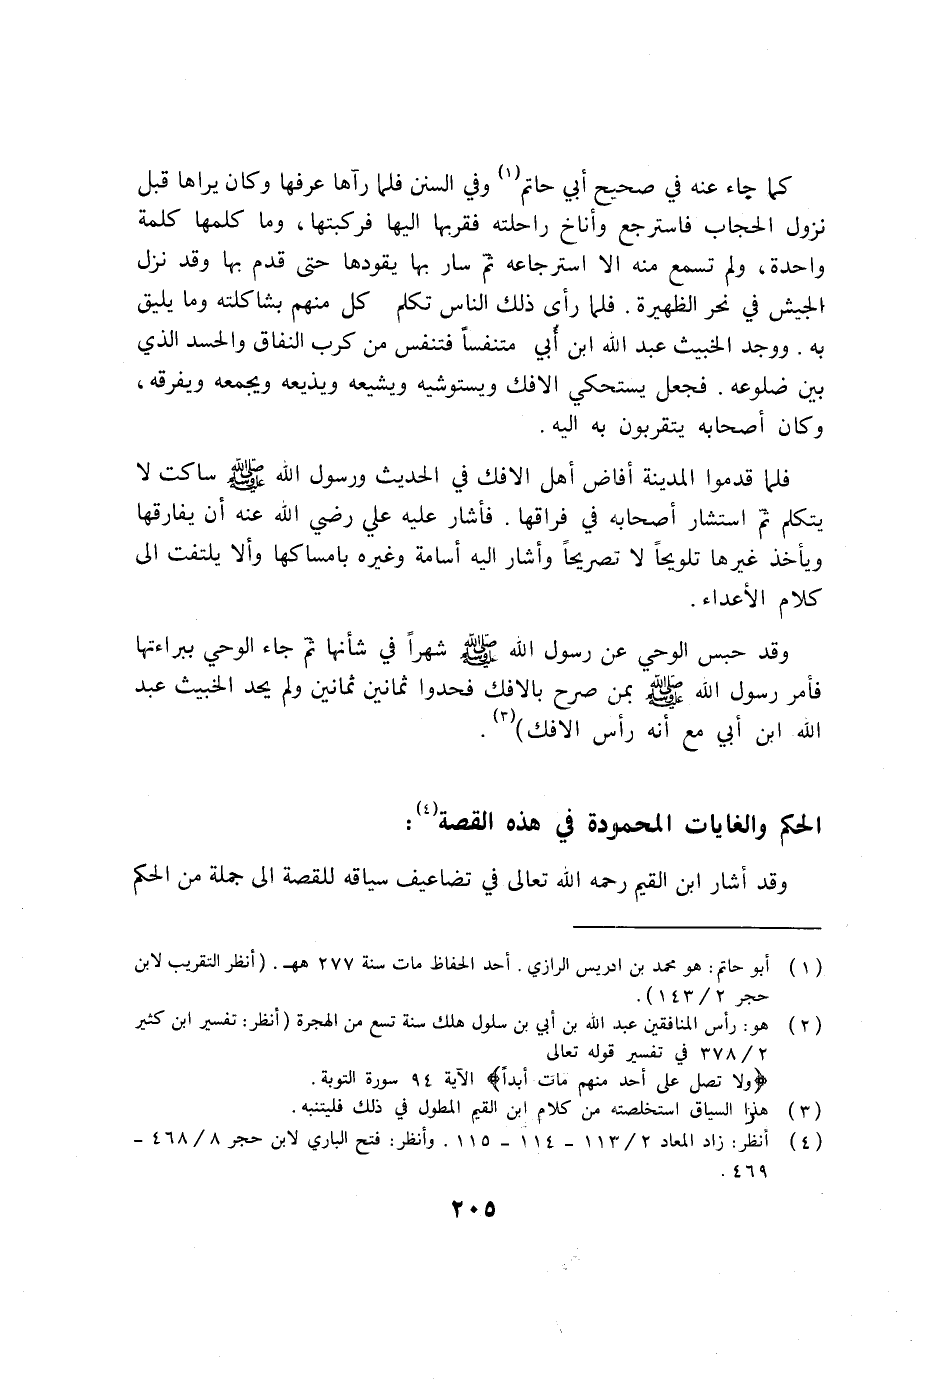 كما جاء عنه في صحيح أبي حاتم(١) وفي السنن فلما رآها عرفها وكان يراها قبل
نزول الحجاب فاسترجع وأناخ راحلته فقربها اليها فركبتها، وما كلمها كلمة
واحدة، ولم تسمع منه الا استرجاعه ثمّ سار بها يقودها حتى قدم بها وقد نزل
الجيش في نحر الظهيرة. فلما رأى ذلك الناس تكلم كل منهم بشاكلته وما يليق
به. ووجد الخبيث عبد الله ابن أُبي متنفساً فتنفس من كرب النفاق والحسد الذي
بين ضلوعه. فجعل يستحكي الافك ويستوشيه ويشيعه ويذيعه ويجمعه ويفرقه،
وكان أصحابه يتقربون به اليه.
فلما قدموا المدينة أفاض أهل الافك في الحديث ورسول الله ﷺ ساكت لا
يتكلم ثمّ استشار أصحابه في فراقها. فأشار عليه علي رضي الله عنه أن يفارقها
ويأخذ غيرها تلويحاً لا تصريحاً وأشار اليه أسامة وغيره بامساكها وألا يلتفت الى
كلام الأعداء.
وقد حبس الوحي عن رسول الله ﷺ شهراً في شأنها ثمّ جاء الوحي ببراءتها
فأمر رسول الله ﷺ بمن صرح بالافك فحدوا ثمانين ثمانين ولم يحد الخبيث عبد
الله ابن أبي مع أنه رأس الافك)(٣).
الحكم والغايات المحمودة في هذه القصة(٤):
وقد أشار ابن القيم رحمه الله تعالى في تضاعيف سياقه للقصة الى جملة من الحكم
(١) أبو حاتم: هو محمد بن ادريس الرازي. أحد الحفاظ مات سنة ٢٧٧ هـ. (أنظر التقريب لابن
حجر ٢/١٤٣).
(٢) هو: رأس المنافقين عبد الله بن أبي بن سلول هلك سنة تسع من الهجرة (أنظر: تفسير ابن كثير
٢/٣٧٨ في تفسير قوله تعالى
﴿ولا تصل على أحد منهم مات أبداً﴾ الآية ٩٤ سورة التوبة.
(٣) هذا السياق استخلصته من كلام ابن القيم المطول في ذلك فليتنبه.
(٤) أنظر: زاد المعاد ٢/١١٣ - ١١٤ - ١١٥. وأنظر: فتح الباري لابن حجر ٨/٤٦٨ -
٤٦٩.
٢٠٥